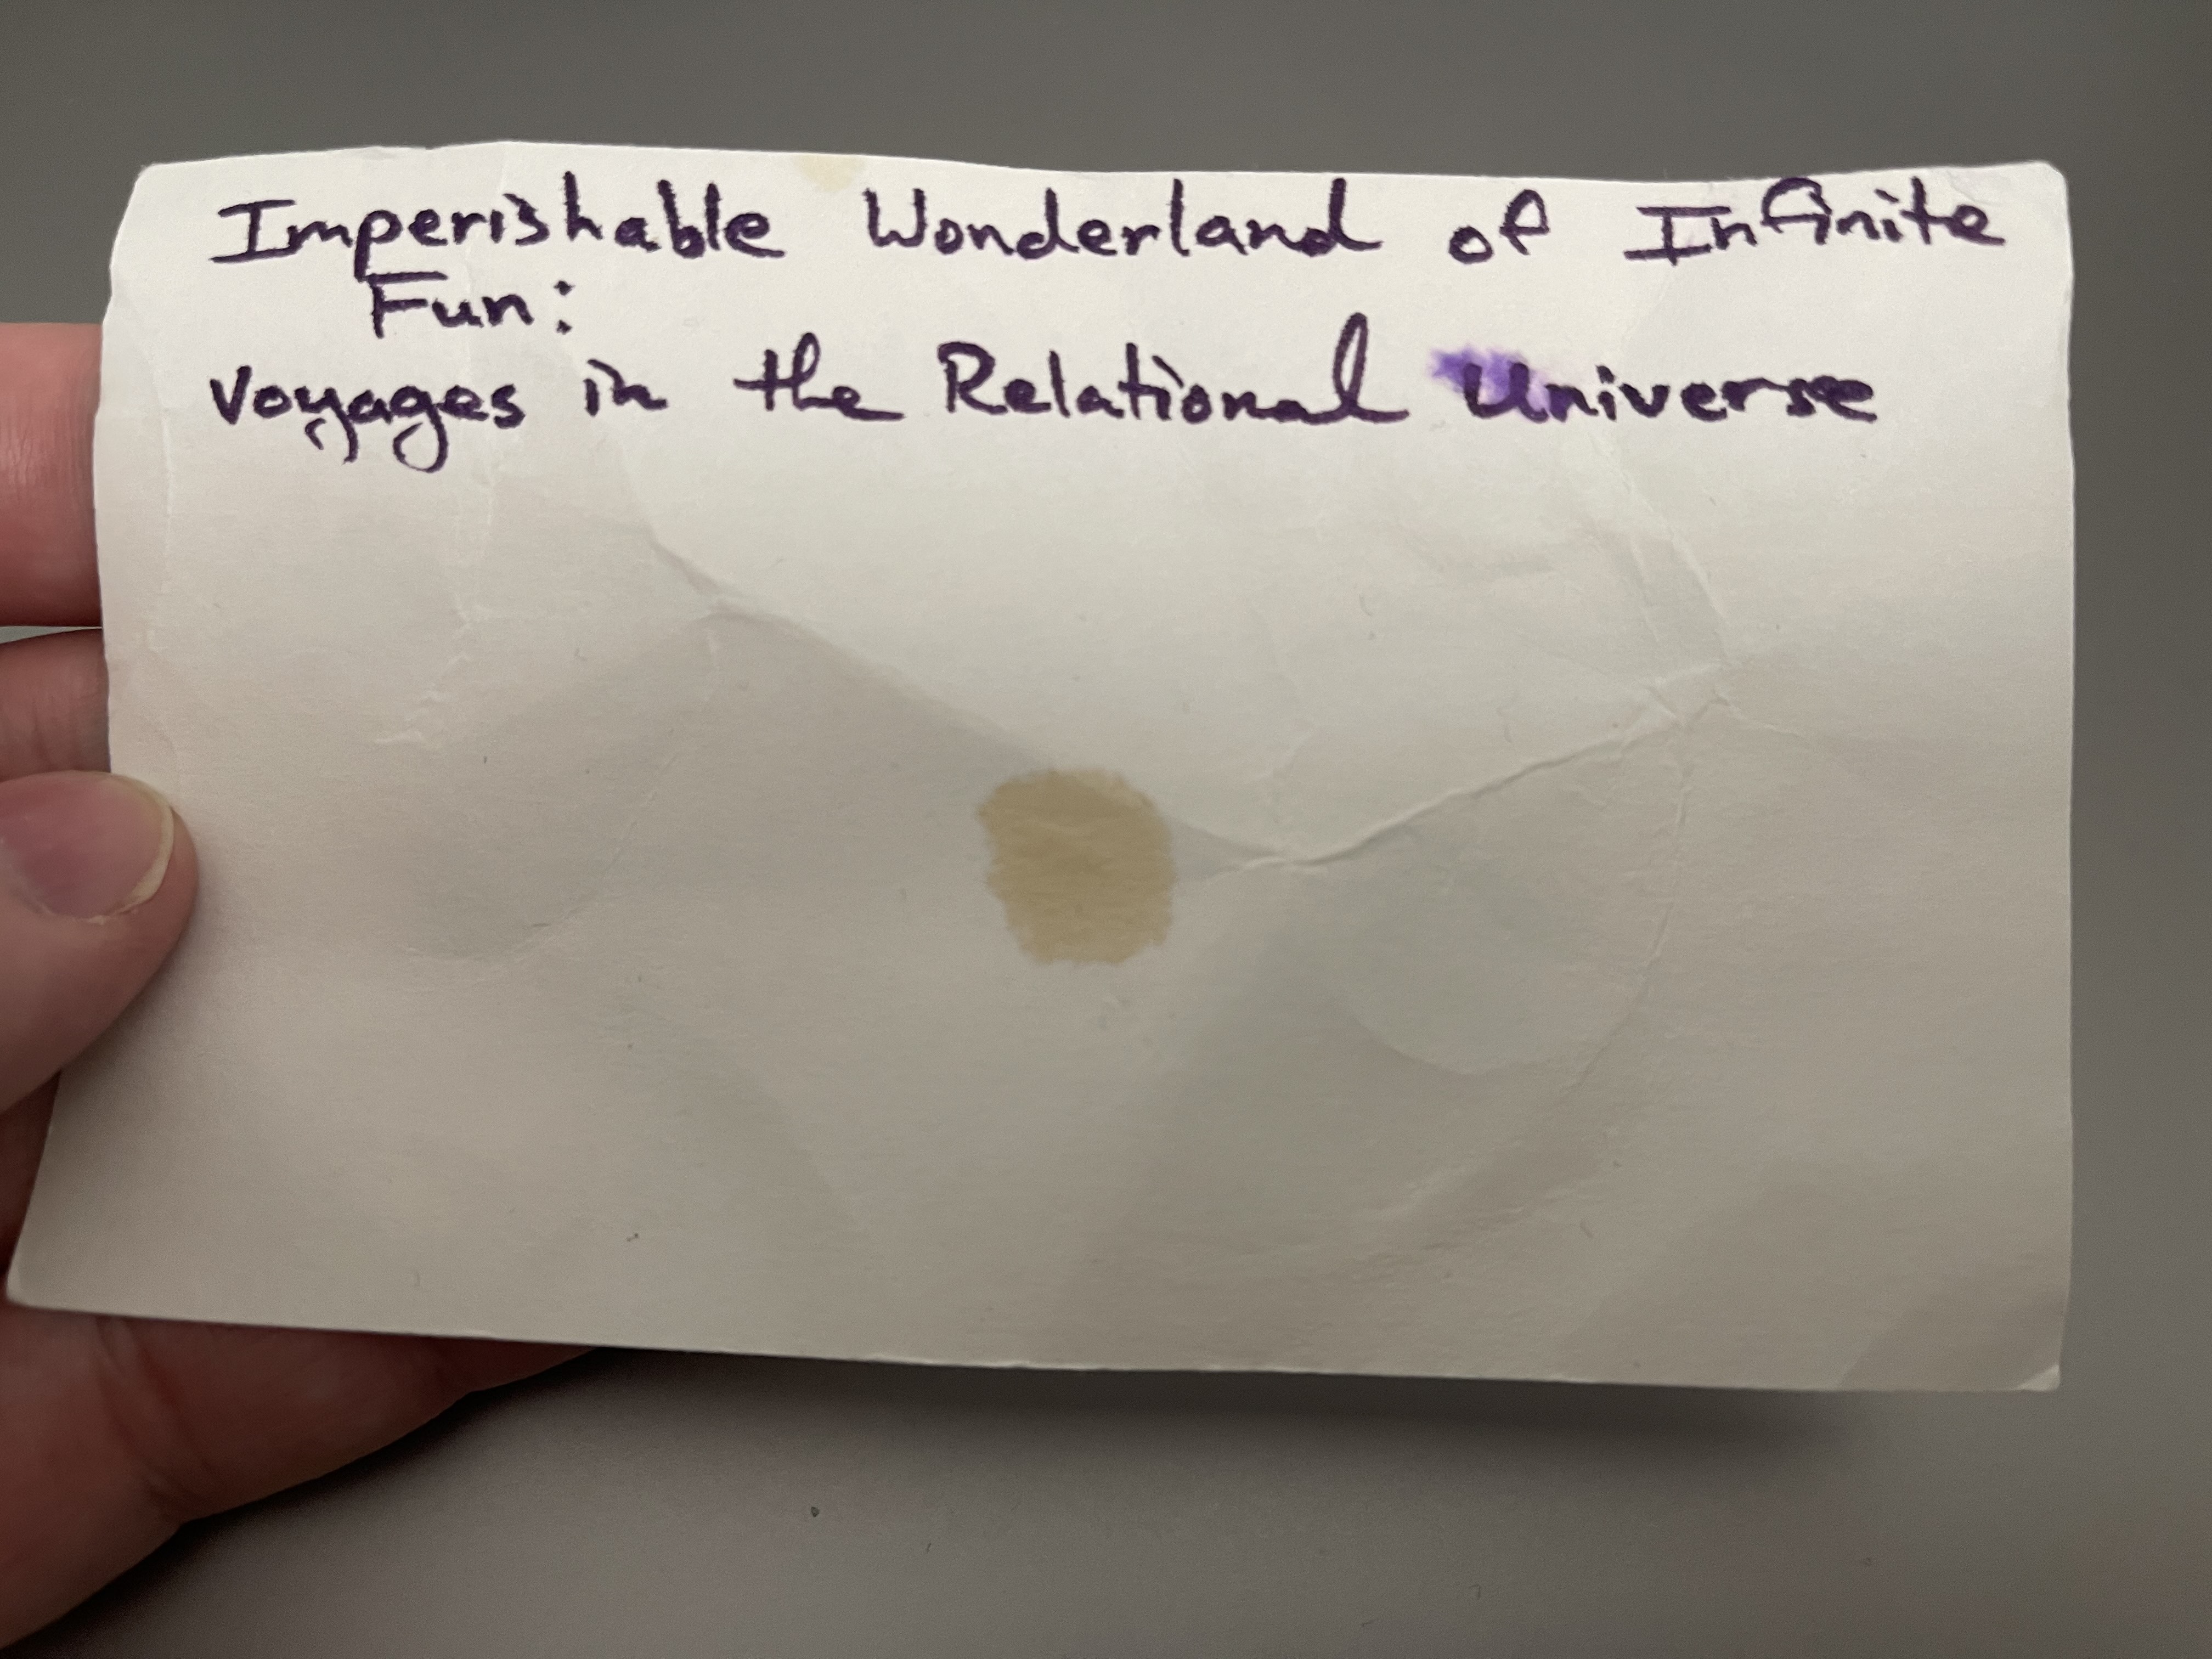 Imperishable Wonderland of Infinite
Fun:
Voyages in the Relational Universe